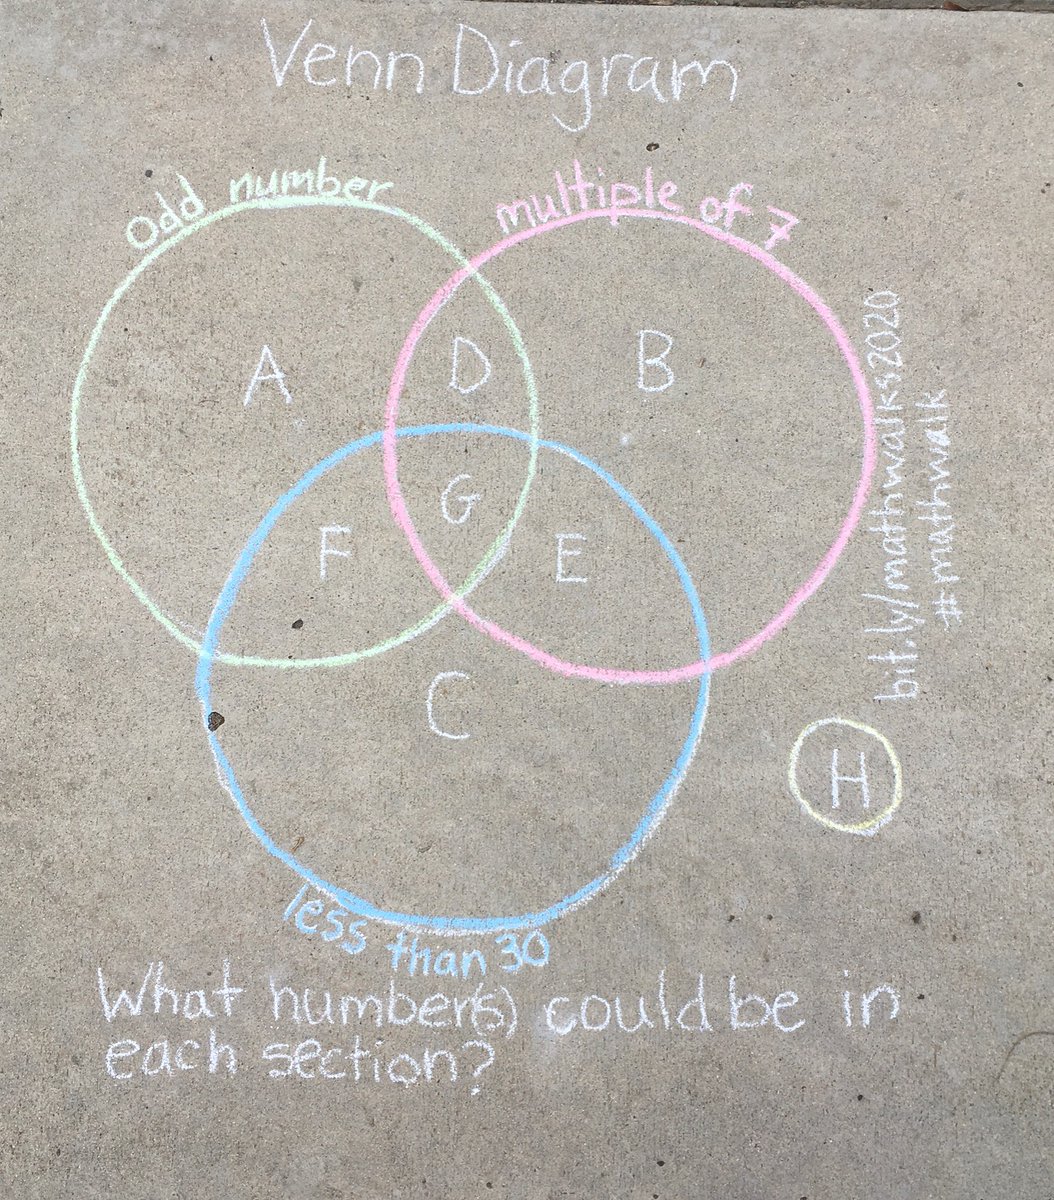 Venn Diagram
odd number
multiple of 7
A
D
B
G
F
E
C
H
bit.ly/mathwalks2020
#mathwalk
less than 30
What number(s) could be in
each section?